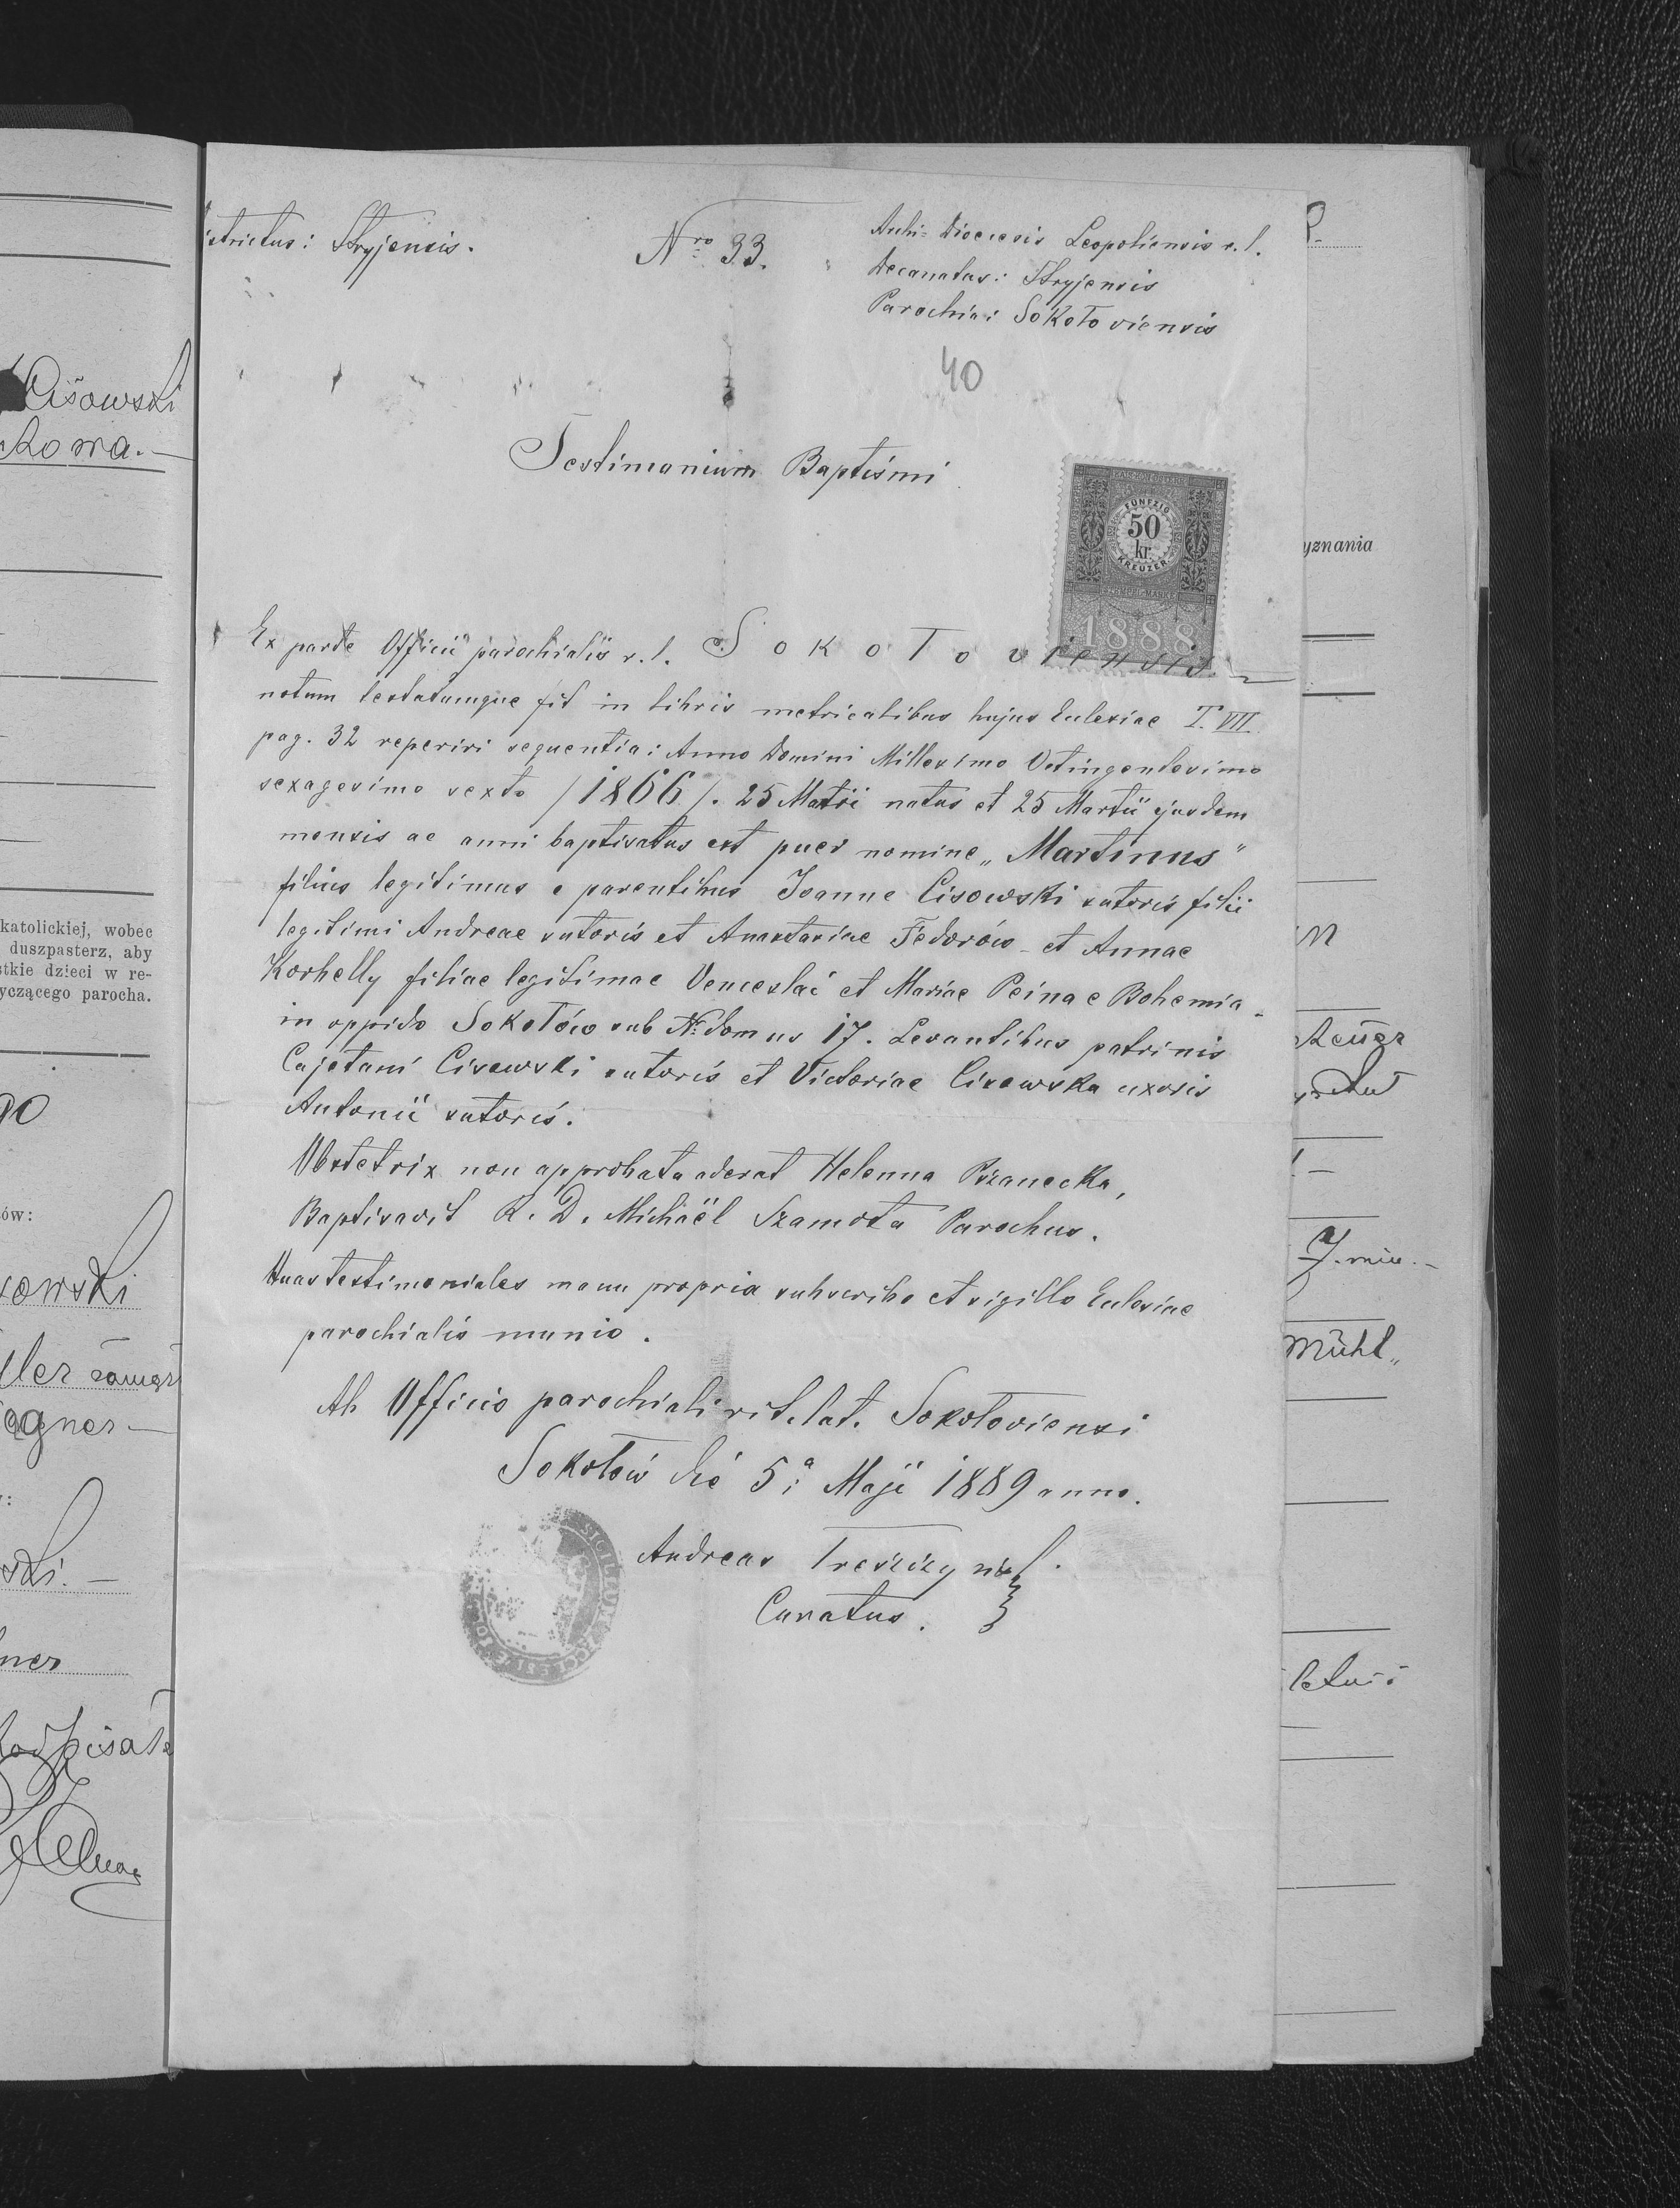 istrictus: Stryjensis.
Nro 33.
Archi-Dioecesis Leopoliensis r. l.
Decanatus: Stryjensis
Parochia: Sokołoviensis
40
Testimonium Baptismi
FÜNFZIG
50
kr.
KREUZER
STEMPEL-MARKE
1888
Ex parte Officii parochialis r. l. Sokołoviensis.
notum testatumque fit in libris metricalibus hujus Eclesiae T. VII.
pag. 32 reperiri sequentia: Anno Domini Millesimo Octingentesimo
sexagesimo sexto /1866/. 25 Martii natus et 25 Martii ejusdem
mensis ac anni baptisatus est puer nomine „Martinus"
filius legitimus e parentibus Joanne Cisowski sutoris filii
legitimi Andreae sutoris et Anastasiae Fedorów et Annae
Korhelly filiae legitimae Venceslai et Mariae Peina e Bohemia.
in oppido Sokołów sub No domus 17. Levantibus patrinis
Cajetani Cisewski sutoris et Victoriae Cisewska uxoris
Antonii sutoris.
Obstetrix non approbata aderat Helenna Pżanecka,
Baptisavit R. D. Michaël Szamota Parochus.
Huas testimoniales manu propria subscribo et sigillo Eclesiae
parochialis munio.
Ab Officio parochiali rit. lat. Sokołoviensi
Sokołów die 5a Maji 1889 anno.
Andreas
Curatus.
SIGILLUM ECCLESI
Cisowski
kowa.—
katolickiej, wobec
duszpasterz, aby
stkie dzieci w re-
yczącego parocha.
90
ów:
sowski
ler
egner—
ski.—
ner
podpisała
yznania
Mühl„